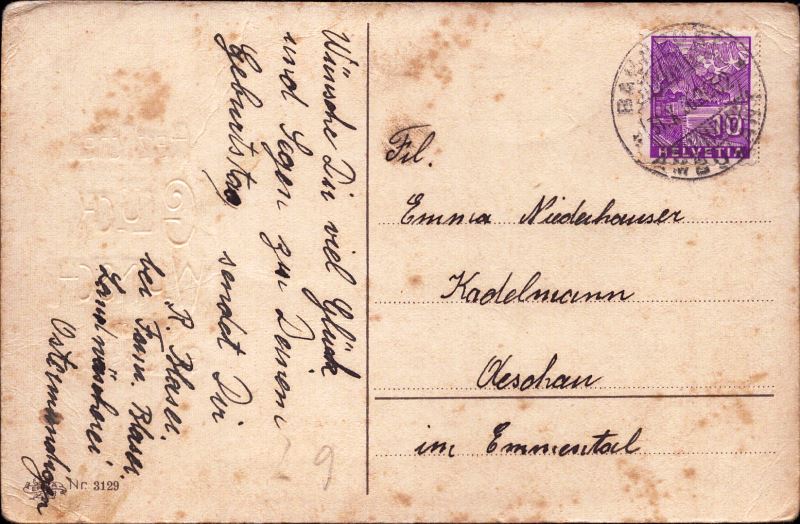 Wünsche Dir viel Glück
und Segen zu Deinem
Geburtstag sendet Dir
R. Blaser.
bei Fam. Blaser.
Ostermundigen
Nr. 3129
9
HELVETIA
10
Frl.
Emma Niederhauser
Kadelmann
Oeschau
im Emmental